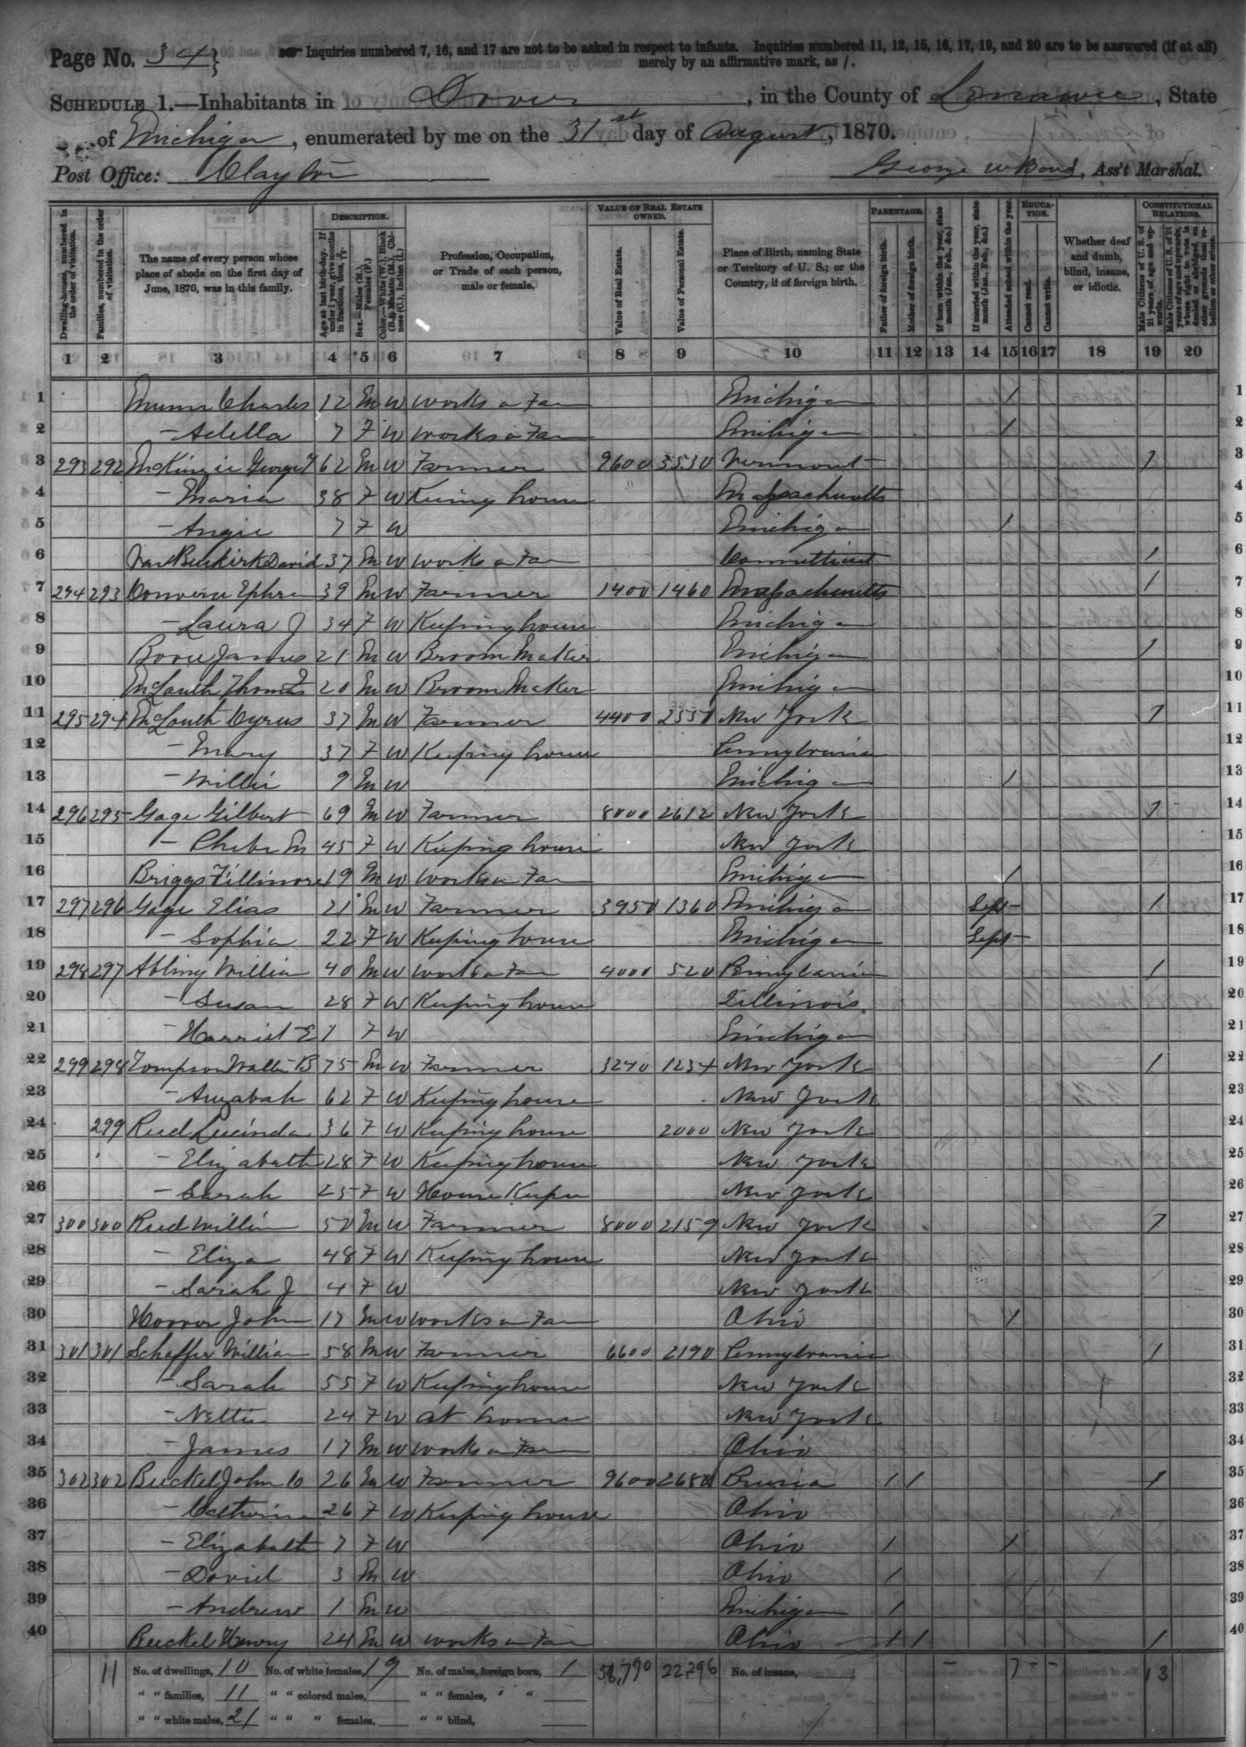 Page No. 34
Inquiries numbered 7, 16, and 17 are not to be asked in respect to infants. Inquiries numbered 11, 12, 15, 16, 17, 19, and 20 are to be answered (if at all)
merely by an affirmative mark, as /.
SCHEDULE 1.—Inhabitants in Dover, in the County of Lenawee, State
of Michigan, enumerated by me on the 31st day of August, 1870.
Post Office: Clayton
George W Bond, Ass't Marshal.
DESCRIPTION. VALUE OF REAL ESTATE OWNED. PARENTAGE. EDUCATION. CONSTITUTIONAL RELATIONS.
Dwelling-houses, numbered in the order of visitation.
Families, numbered in the order of visitation.
The name of every person whose place of abode on the first day of June, 1870, was in this family.
Age at last birth-day. If under 1 year, give months in fractions, thus,
Sex.—Males (M.), Females (F.)
Color.—White (W.), Black (B.), Mulatto (M.), Chinese (C.), Indian (I.)
Profession, Occupation, or Trade of each person, male or female.
Value of Real Estate.
Value of Personal Estate.
Place of Birth, naming State or Territory of U. S.; or the Country, if of foreign birth.
Father of foreign birth.
Mother of foreign birth.
If born within the year, state month (Jan., Feb., &c.)
If married within the year, state month (Jan., Feb., &c.)
Attended school within the year.
Cannot read.
Cannot write.
Whether deaf and dumb, blind, insane, or idiotic.
Male Citizens of U. S. of 21 years of age and upwards.
1 2 3 4 5 6 7 8 9 10 11 12 13 14 15 16 17 18 19 20
1 Charles 12 M W Works a Fa Michigan / 1
2 — Adella 7 F W Works a Fa Michigan / 2
3 293 292 McKinzie George 62 M W Farmer 9600 Vermont 1 3
4 — Maria 38 F W Keeping house Massachusetts 4
5 — Angie 7 F W Michigan / 5
6 VanBuskirk David 37 M W Works a Fa Connetticut 1 6
7 294 293 Converse Ephra 39 M W Farmer 1400 1460 Massachusetts 1 7
8 — Laura J 34 F W Keeping house Michigan 8
9 James 21 M W Broom Maker Michigan 1 9
10 McLouth Thomas 20 M W Broom Maker Michigan 10
11 295 294 McLouth Cyrus 37 M W Farmer 4400 New York 1 11
12 — Mary 37 F W Keeping house Pennsylvania 12
13 — Willie 9 M W Michigan / 13
14 296 295 Gage Gilbert 69 M W Farmer 8000 2612 New York 1 14
15 — Phebe M 45 F W Keeping house New York 15
16 Briggs Fillmore 19 M W Works a Fa Michigan / 16
17 297 296 Gage Elias 21 M W Farmer 3950 1360 Michigan Sept 1 17
18 — Sophia 22 F W Keeping house Michigan Sept 18
19 298 297 William 40 M W Works a Fa 4000 520 Pennsylvania 1 19
20 — Susan 28 F W Keeping house Illinois 20
21 — Harriet E 1 F W Michigan 21
22 299 298 Tompson B 75 M W Farmer 3240 1234 New York 1 22
23 — 62 F W Keeping house New York 23
24 299 Reed Lucinda 36 F W Keeping house 2000 New York 24
25 — Elizabeth 28 F W Keeping house New York 25
26 — Sarah 25 F W House Keeper New York 26
27 300 300 Reed Willim 50 M W Farmer 8000 2159 New York 1 27
28 — Eliza 48 F W Keeping house New York 28
29 — Sarah J 4 F W New York 29
30 Hoover John 17 M W Works a Fa Ohio / 30
31 301 301 Schaffer William 58 M W Farmer 6600 2190 Pennsylvania 1 31
32 — Sarah 55 F W Keeping house New York 32
33 — Nettie 24 F W at home New York 33
34 — James 17 M W Works a Fa Ohio 34
35 302 302 Beuckel John C 26 M W Farmer 9600 2680 Prusia / / 1 35
36 — Catherine 26 F W Keeping house Ohio 36
37 — Elizabeth 7 F W Ohio / / 37
38 — David 3 M W Ohio / 38
39 — Andrew 1 M W Michigan / 39
40 Beuckel Henry 24 M W Works a Fa Ohio / / 1 40
11 No. of dwellings, 10 No. of white females, 19 No. of males, foreign born, 1 22,796 No. of insane, 7 – – 13
" " families, 11 " " colored males, " " females, " "
" " white males, 21 " " " females, " " blind,